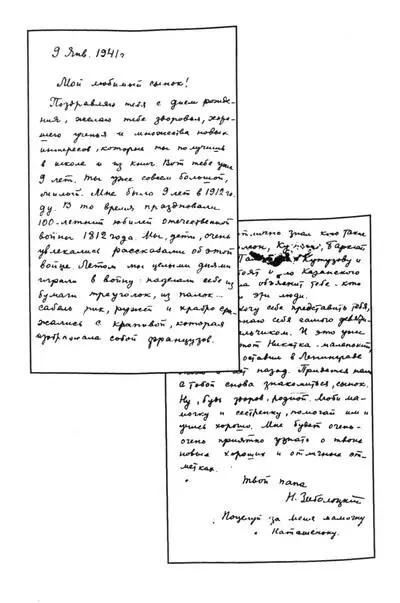 9 Янв. 1941 г
Мой любимый сынок!
Поздравляю тебя с днем рожде-
ния, желаю тебе здоровья, хоро-
шего ученья и множества новых
интересов, которые ты получишь
в школе и из книг. Вот тебе уже
9 лет. Ты уже совсем большой,
милый. Мне было 9 лет в 1912 го-
ду. В то время праздновали
100-летний юбилей отечественной
войны 1812 года. Мы, дети, очень
увлекались рассказами об этой
войне. Летом мы целыми днями
играли в войну: наделали себе из
бумаги треуголок, из палок -
сабель, пик, ружей и храбро сра-
жались с крапивой, которая
изображала собой французов.
знал кто такие
Кутузову и
Казанского
объяснит тебе - кто
эти люди.
хочу себе представить тебя,
себя самого
И это уже
тот Никитка - маленький,
оставил в Ленинграде
лет назад. Придется нам
с тобой снова знакомиться, сынок.
Ну, будь здоров, родной. Люби ма-
мочку и сестренку, помогай им и
учись хорошо. Мне будет очень-
очень приятно узнать о твоих
новых хороших и отличных от-
метках.
Твой папа
Н. Заболоцкий
Поцелуй за меня мамочку
и Наташеньку.